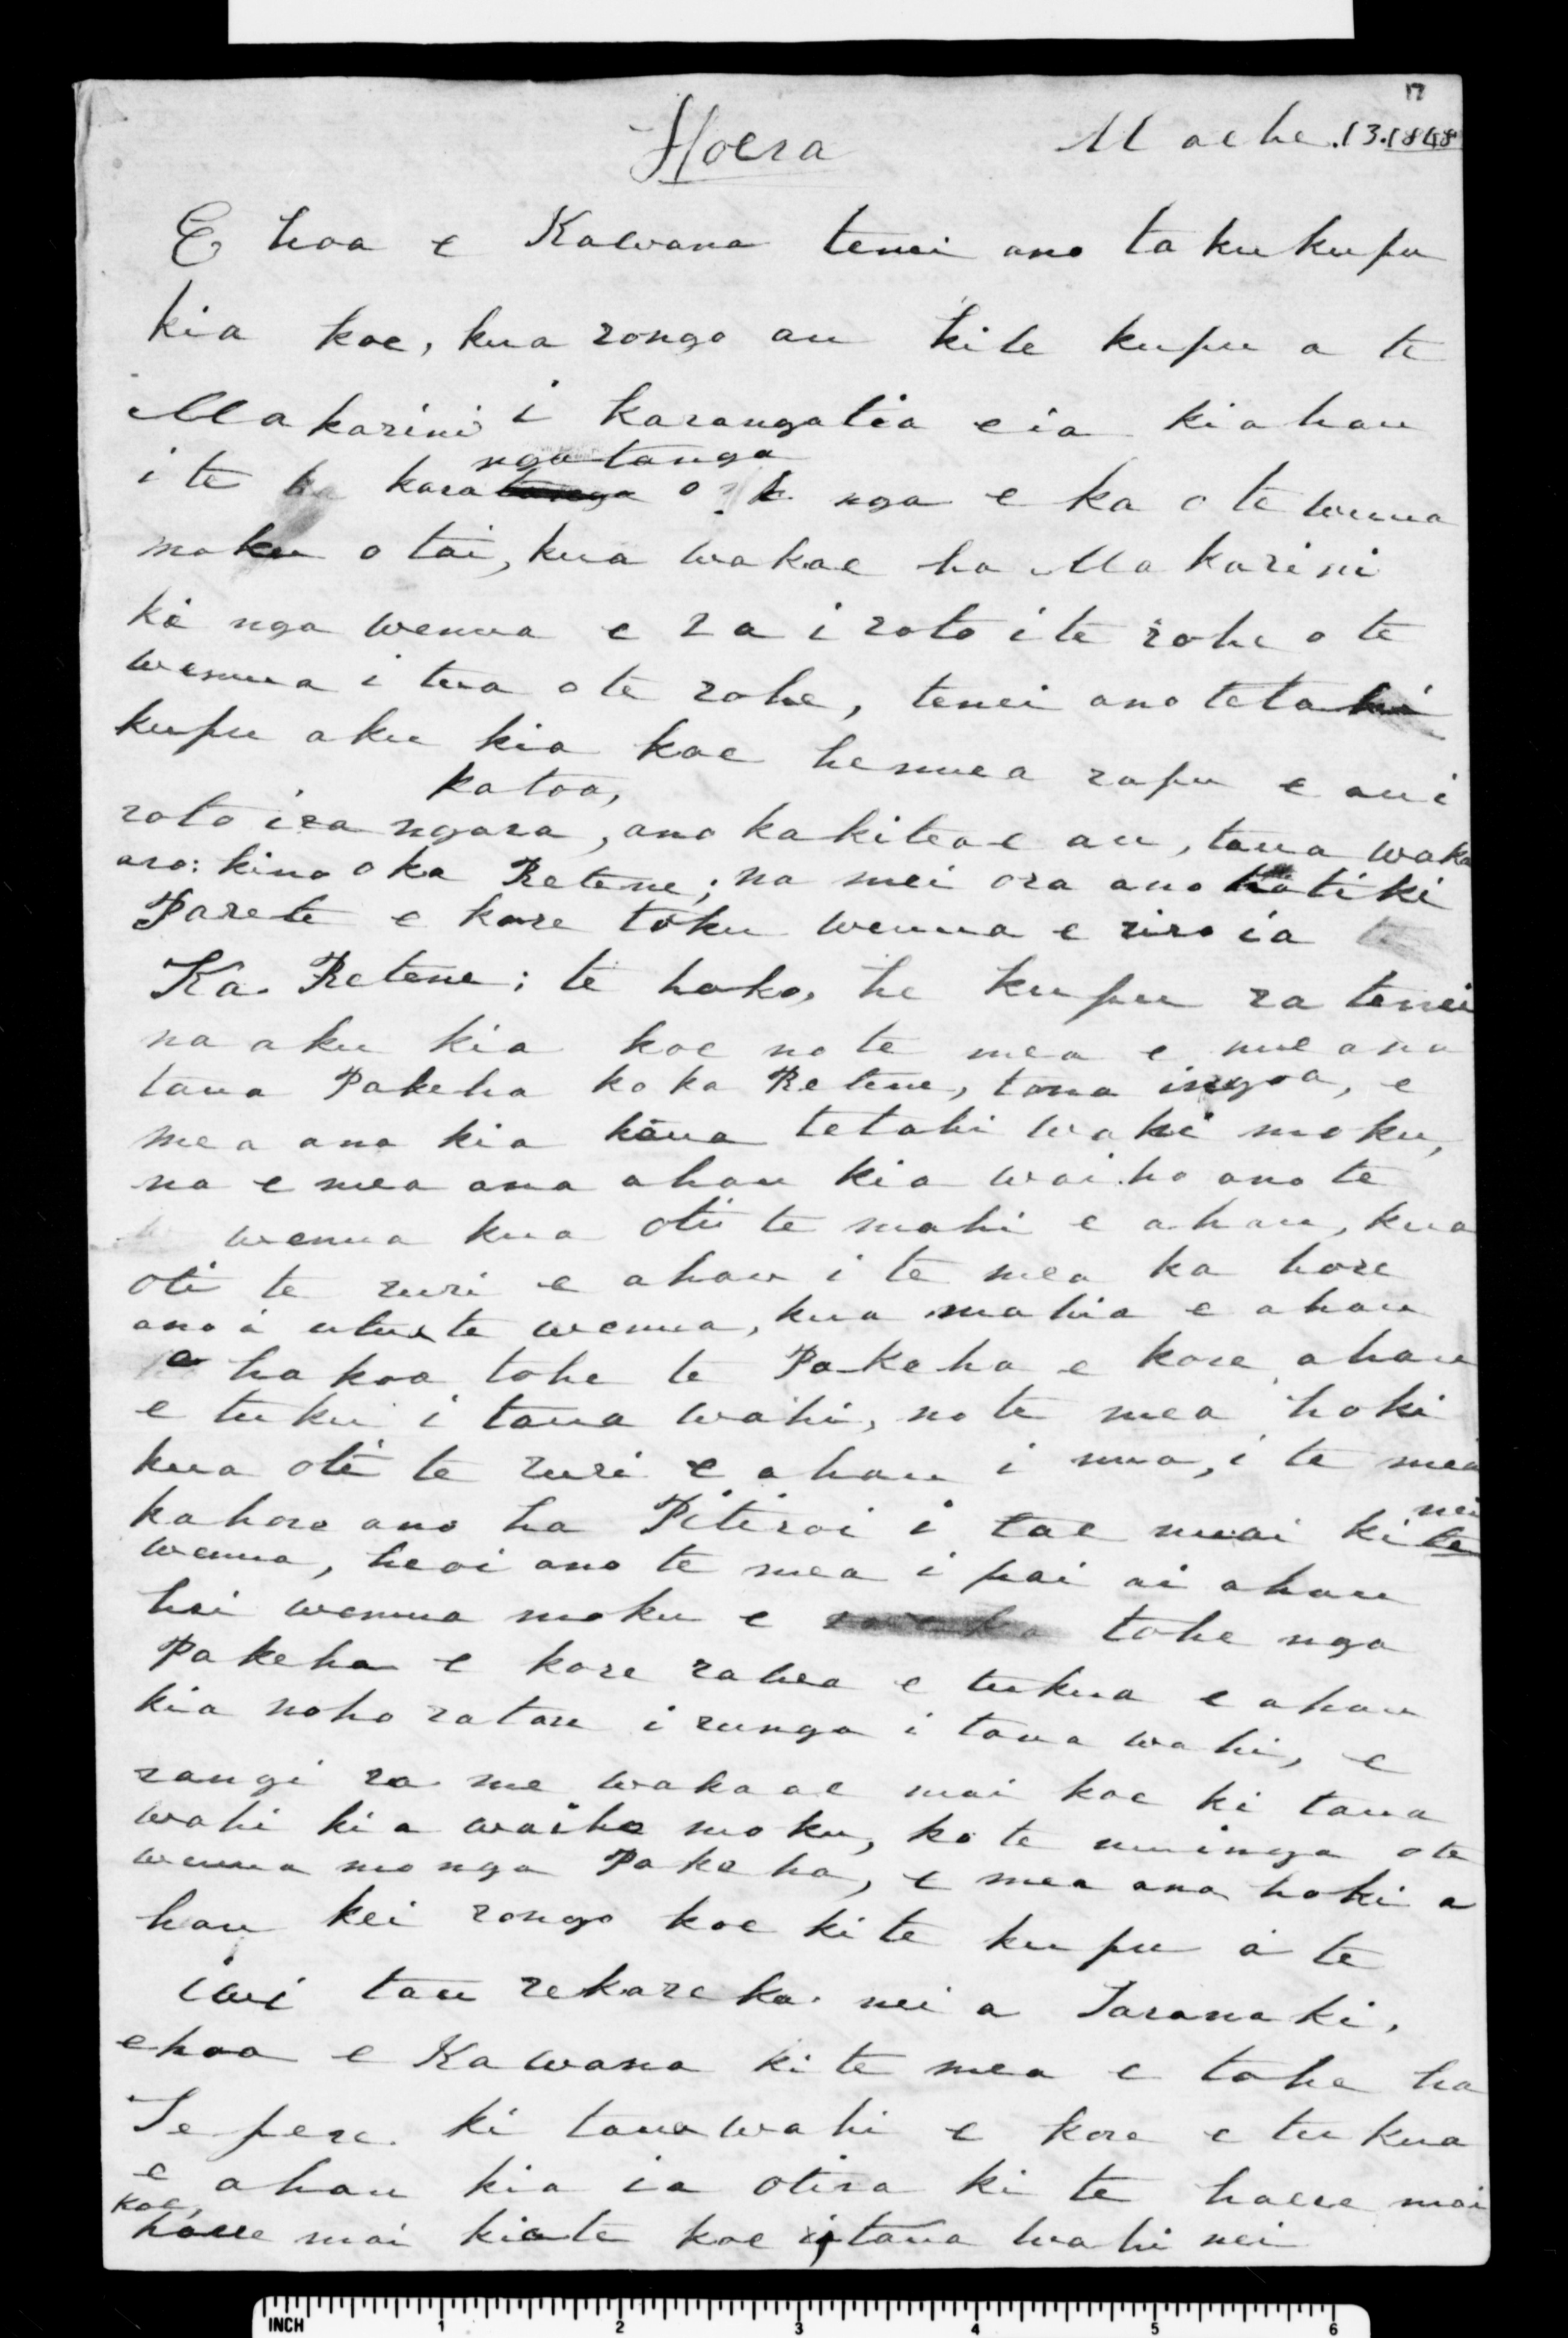 17
Hoera Maehe.13.1848
E hoa e Kawana tenei ano ta ku kupu
kia koe, kua rongo au kite kupu a te
Makarini i karangatia e ia kiahau
ngatanga
i te kara o nga e ka o te wenua
moku o tai, kua wakae ha Makarini
ki nga wenua e ra i roto i te rohe o te
wenua i tua o te rohe, tenei ano tetahi
kupu aku kia koe hemea rapu e au i
katoa,
roto ira ngara, ano kakitea e au, taua waka
aro: kino o ka Retene; na mei ora ano tatiki
Parete e kore toku wenua e riro ia
Ka. Retene; te hoko, he kupu ra tenei
na aku kia koe no te mea e mea ana
taua Pakeha ko ka Retene, tona ingoa, e
mea ana kia kaua tetahi wahi moku,
na e mea ana ahau kia waiho ano te
wenua kua oti te mahi e ahau, kua
oti te ruri e ahau i te mea ka hore
ano i utua te wenua, kua mahia e ahau
a ha koa tohe te Pakeha e kore ahau
e tuku i taua wahi, no te mea hoki
kua oti te ruri e ahau i mua, i te mea
nei
kahore ano ha Pitiroi i tae mai ki te
wenua, heoi ano te mea i pai ai ahau
hei wenua moku e tohe nga
Pakeha e kore rawa e tukua e ahau
kia noho ratou i runga i taua wahi, e
rangi ra me wakaae mai koe ki taua
wahi kia waiho moku, ko te nuinga ote
wenua mo nga Pakeha, e mea ana hoki a
hau kei rongo koe ki te kupu a te
iwi tau rekareka nei a Taranaki,
ehoa e Kawana ki te mea e tohe ha
Te pere. ki taua wahi e kore e tukua
e ahau kia ia otira ki te haere mai
koe,
haere mai kiate koe i taua wahi nei
INCH 1 2 3 4 5 6